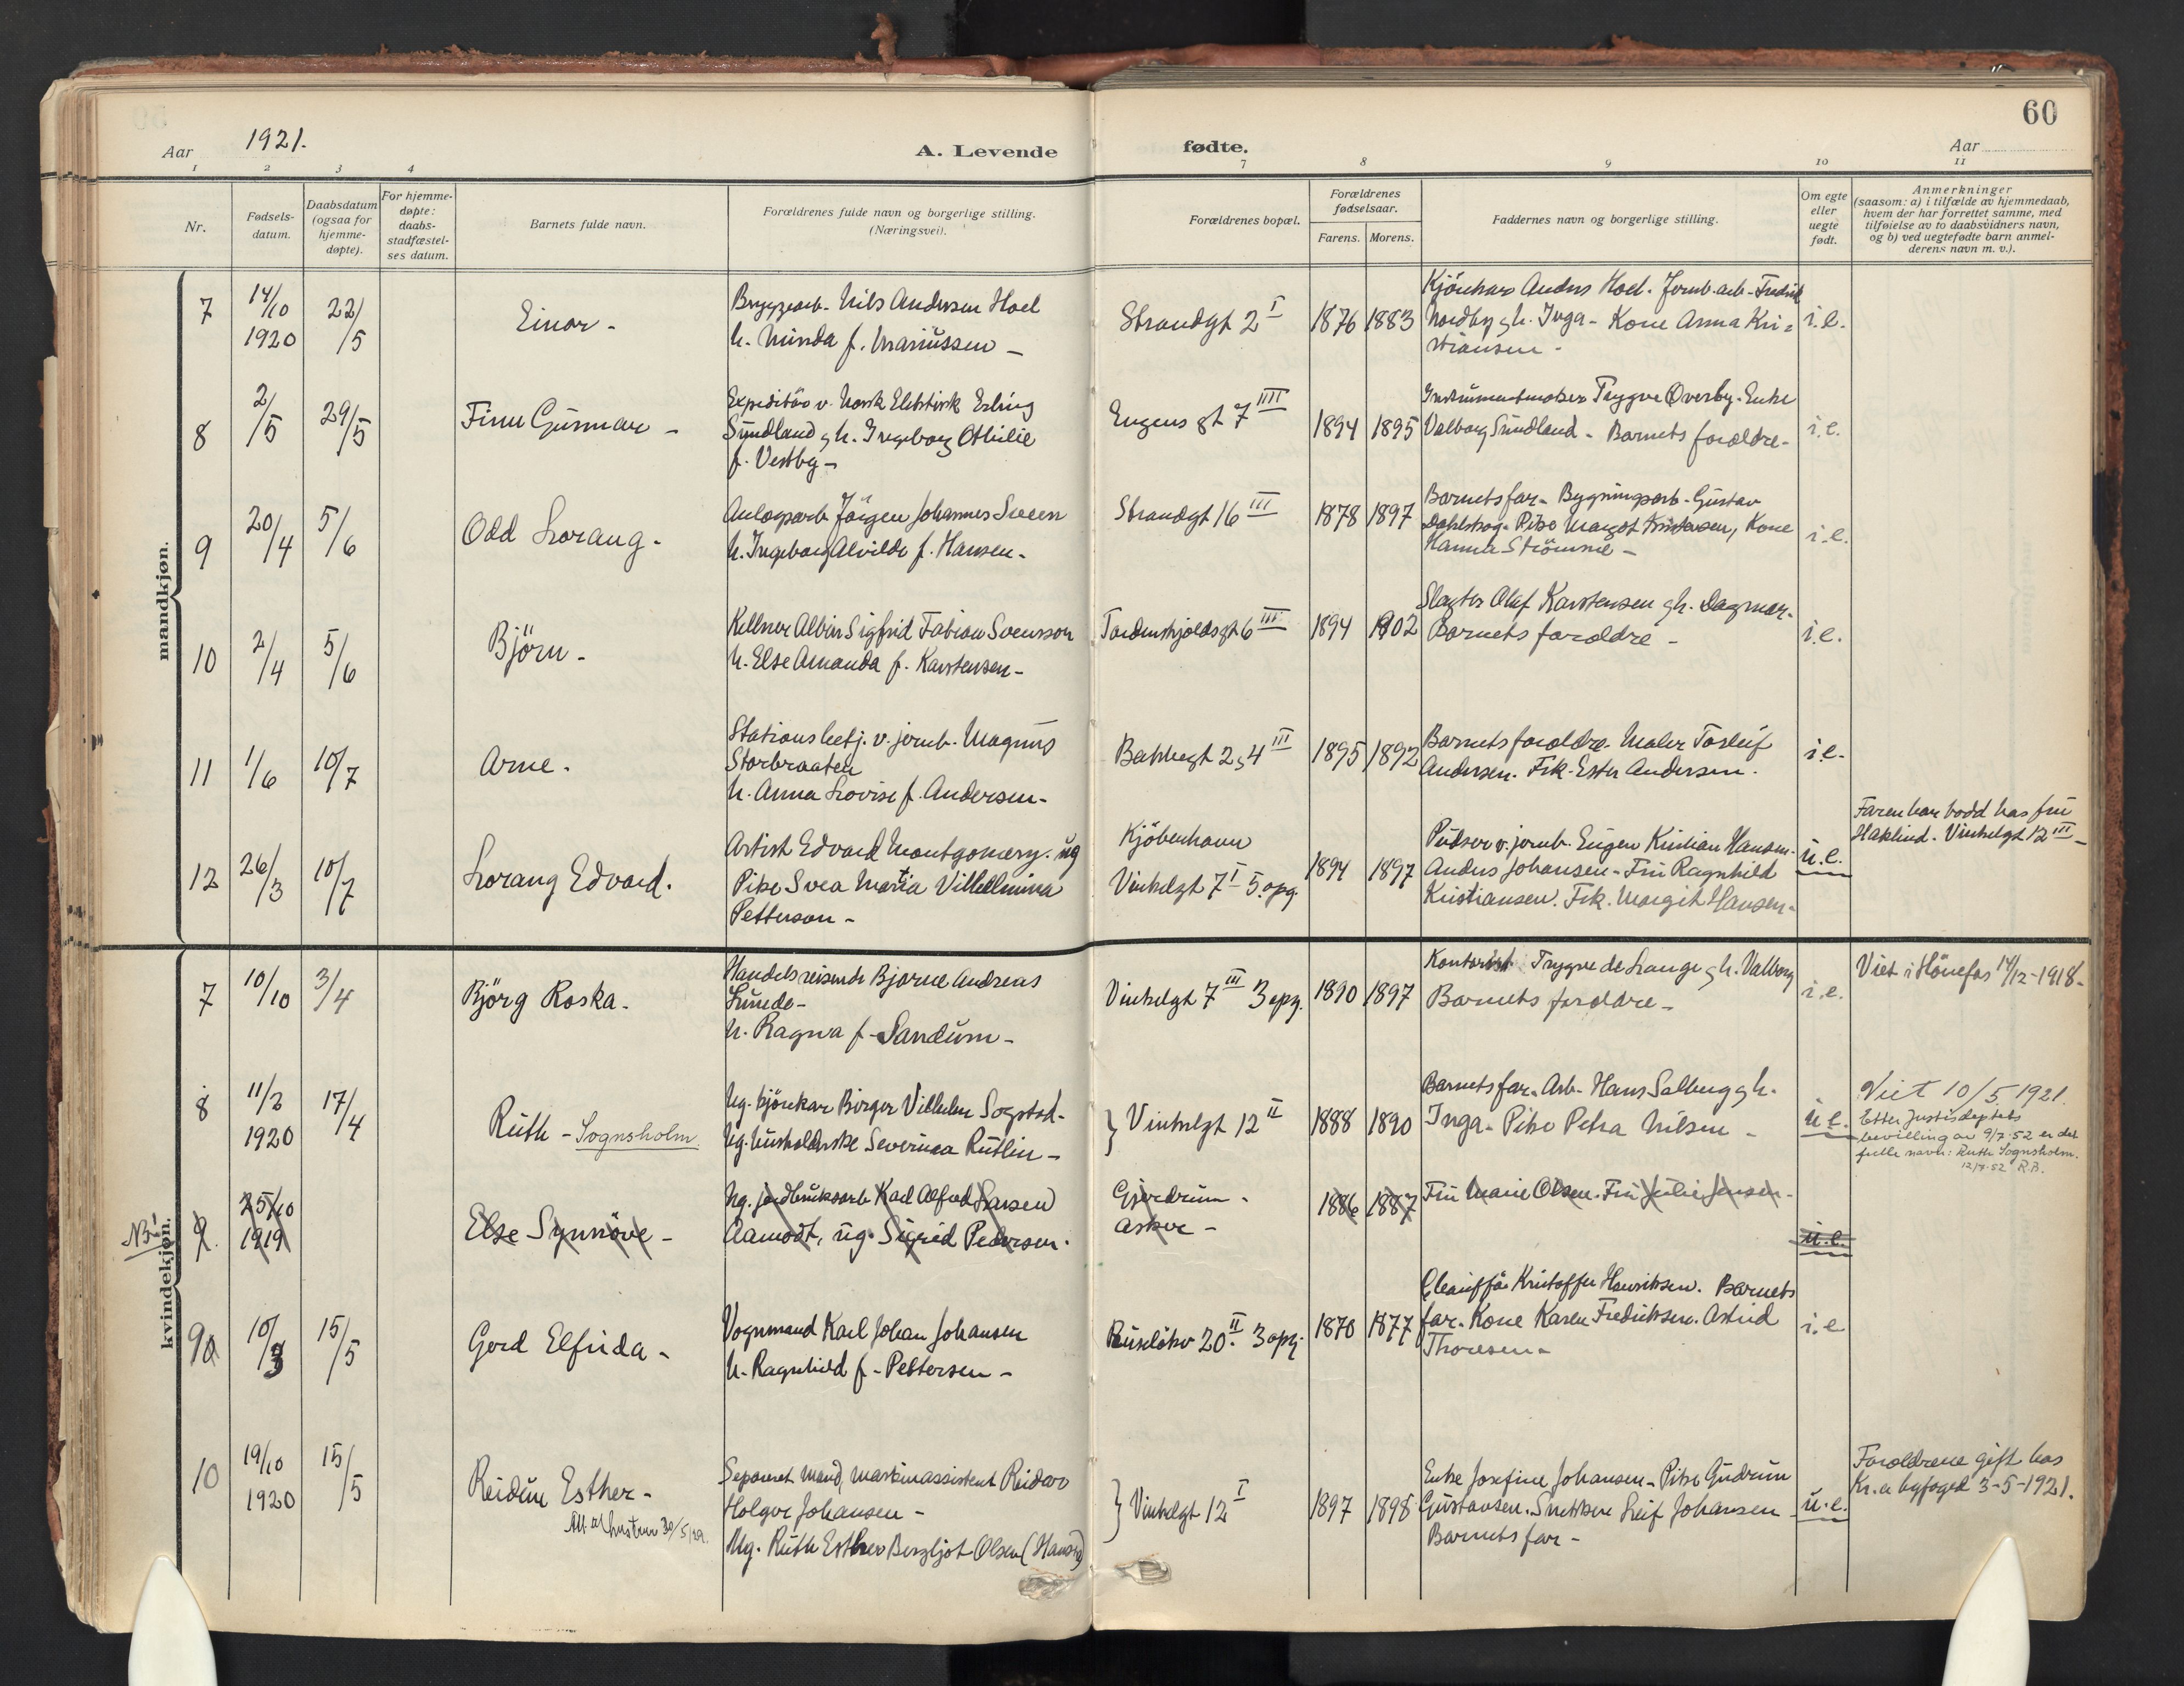 60
Aar 1921. A. Levende fødte. Aar
1 2 3 4 7 8 9 10 11
Nr.
Fødsels-
datum.
Daabsdatum
(ogsaa for
hjemme-
døpte).
For hjemme-
døpte:
daabs-
stadfæstel-
ses datum.
Barnets fulde navn.
Forældrenes fulde navn og borgerlige stilling.
(Næringsvei).
Forældrenes bopæl.
Forældrenes
fødselsaar.
Farens. Morens.
Faddernes navn og borgerlige stilling.
Om egte
eller
uegte
født.
Anmerkninger
(saasom: a) i tilfælde av hjemmedaab,
hvem der har forrettet samme, med
tilføielse av to daabsvidners navn,
og b) ved uegtefødte barn anmel-
derens navn m. v.).
mandkjøn.
7
14/10
1920
22/5
Einar -
Bryggearb. Nils Andersen Hoel
h. Minda f. Mariussen -
Strandgt 2 I
1876 1883
Kjörekar Anders Hoel. Jernb.arb. Fredrik
Nordby g h. Inga - Kone Anna Kri=
stiansen -
i.e.
8
2/5
29/5
Finn Gunnar -
Expeditör v. Norsk Elektrisk Erling
Sundland g h. Ingeborg Othilie
f. Vestby -
Engens gt 7 IIII
1894 1895
Instrumentmaker Trygve Overby. Enke
Valborg Sundland - Barnets forældre -
i.e.
9
20/4
5/6
Odd Lorang -
Anlægsarb. Jörgen Johannes Sveen
h. Ingeborg Alvilde f. Hansen -
Strandgt 16 III
1878 1897
Barnets far - Bygningsarb. Gustav
Dahlskog - Pike Margot Kristensen, Kone
Hanna Strömme -
i.e.
10
2/4
5/6
Björn -
Kellner Albin Sigfrid Fabian Svensson
h. Else Amanda f. Karstensen -
Tordenskjoldsgt 6 III
1894 1902
Slagter Olaf Karstensen g h. Dagmar -
Barnets forældre -
i.e.
11
1/6
10/7
Arne -
Stationsbetj. v. jernb. Magnus
Storbraaten
h. Anna Lovise f. Andersen -
Bakkegt 2, 4 III
1895 1892
Barnets forældre - Maler Torleif
Andersen. Frk. Ester Andersen.
i.e.
12
26/3
10/7
Lorang Edvard.
Artist Edvard Montgomery. ug
Pike Svea Maria Villelmina
Petterson -
Kjöbenhavn
Vinkelgt 7 I 5. opg.
1894 1897
Pudser v. jernb. Eugen Kristian Hansen -
Anders Johansen - Fru Ragnhild
Kristiansen. Frk. Margit Hansen -
u.e.
Faren har bodd hos fru
Haklind. Vinkelgt 12 III -
kvindekjøn.
7
10/10
3/4
Björg Roska -
Handelsreisende Bjarne Andreas
Lunde -
h. Ragna f. Sandum -
Vinkelgt 7 III 3 opg.
1890 1897
Kontorist Trygve de Lange g h. Valborg
Barnets forældre -
i.e.
Viet i Hönefos 14/12-1918 -
8
11/2
1920
17/4
Ruth - Sognsholm.
Ug. kjörekar Birger Vilhelm Sogstad -
Ug. husholderske Severina Rutlin -
} Vinkelgt 12 II
1888 1890
Barnets far. Arb. Hans Salberg g h.
Inga - Pike Petra Nilsen -
u.e.
Viet 10/5 1921.
Etter Justisdeptets
bevilling av 9/7-52 er det
fulle navn: Ruth Sognsholm.
12/8-52 R.B.
NB!
9
25/10
1919
Else Synnöve -
Ug. jordbruksarb Karl Alfred Larsen
Aamodt, ug. Sigrid Pedersen.
Gjerdrum -
Asker -
1886 1887
Fru Marie Olsen. Fru Julie Jensen -
u.e.
9a
10/3
15/5
Gerd Elfrida -
Vognmand Karl Johan Johansen
h. Ragnhild f. Pettersen -
Ruselökv 20 II. 3 opg.
1870 1877
Kristoffer Henriksen. Barnets
far. Kone Karen Fredriksen. Astrid
Thoresen -
i.e
10
19/10
1920
15/5
Reidun Esther -
30/5/29.
Separert mand, maskinassistent Reidar
Holger Johansen -
Ug. Ruth Esther Bergljot Olsen (Hansen)
} Vinkelgt 12 I
1897 1898
Enke Josefine Johansen - Pike Gudrun
Gustavsen. Snekker Leif Johansen -
Barnets far -
u.e.
Forældrene gift hos
Kr.a byfoged 3-5-1921.